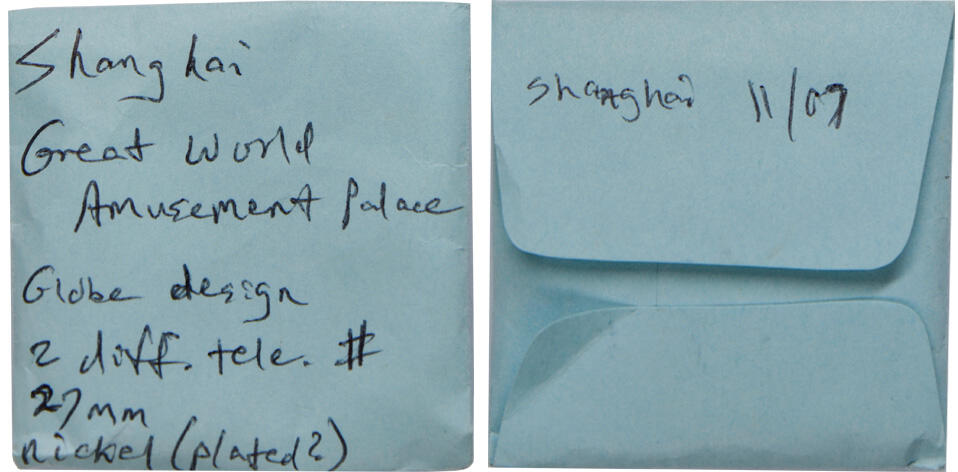 Shanghai
Great World
Amusement Palace
Globe design
2 diff. tele. #
27mm
nickel (plated?)
Shanghai 11/07